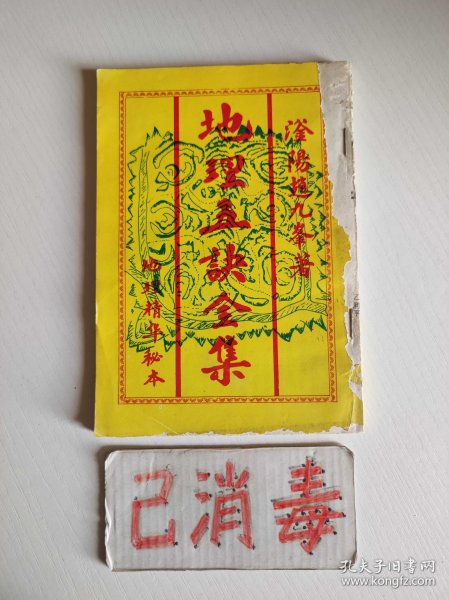 滏陽趙九峯著
地理五訣全集
地理精华秘本
己消毒
孔夫子旧书网
www.kongfz.com